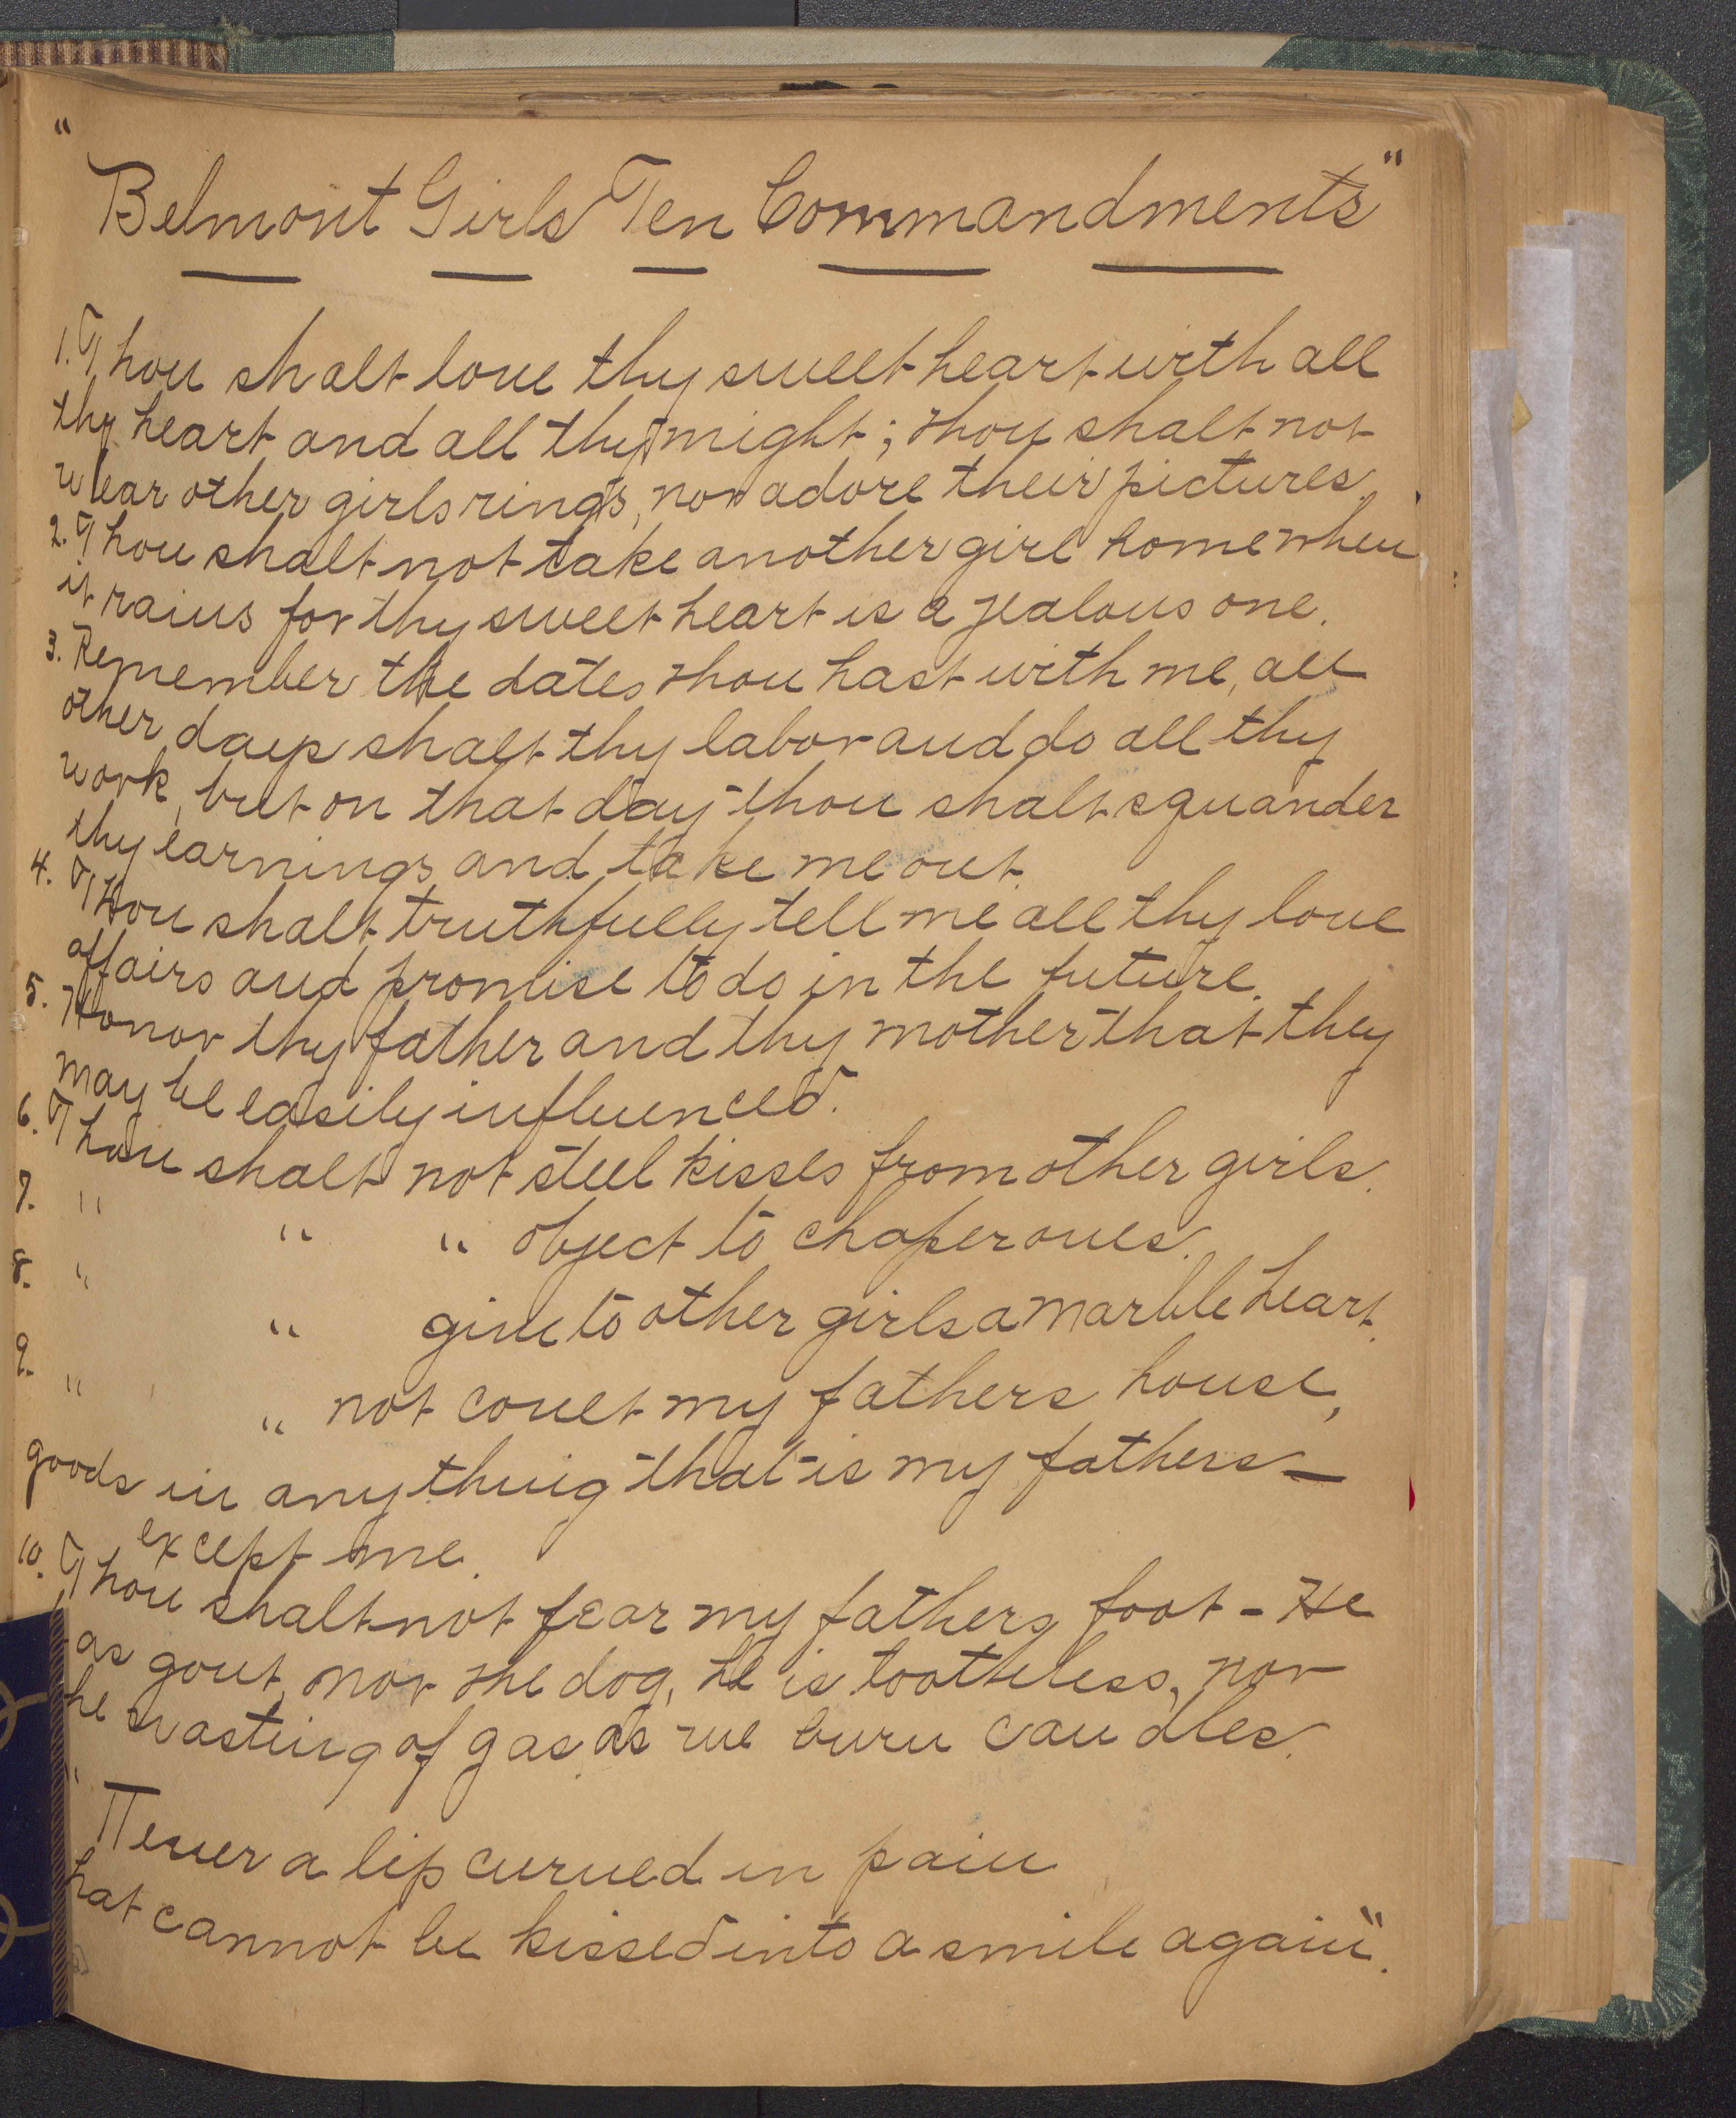 "Belmont Girls Ten Commandments"
1. Thou shalt love thy sweetheart with all
thy heart and all thy might; thou shalt not
wear other girls rings, nor adore their pictures.
2. Thou shalt not take another girl home when
it rains for thy sweetheart is a jealous one.
3. Remember the dates thou hast with me, all
other days shalt thy labor and do all thy
work, but on that day thou shalt squander
thy earnings and take me out.
4. Thou shalt truthfully tell me all thy love
affairs and promise to do in the future.
5. Honor thy father and thy mother that they
may be easily influenced.
6. Thou shalt not steel kisses from other girls.
7. " " " object to chaperones.
8. " " give to other girls a marble heart.
9. " " not covet my fathers house,
goods in anything that is my fathers—
except me.
10. Thou shalt not fear my fathers foot - He
as gout, nor the dog, he is toothless, nor
he wasting of gas as we burn candles.
"Never a lip curved in pain
hat cannot be kissed into a smile again".